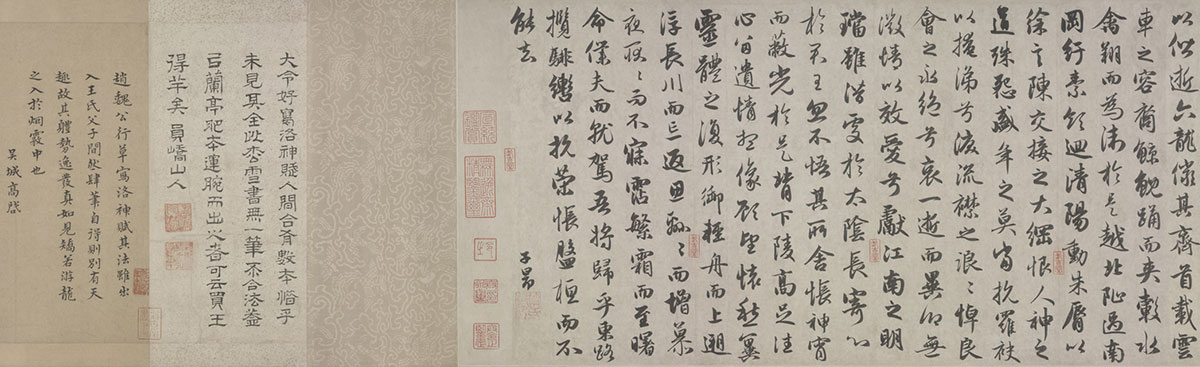 以偕逝六龍儼其齊首載雲
車之容裔鯨鯢踊而夾轂水
禽翔而為衛於是越北沚過南
岡紆素領迴清陽動朱脣以
徐言陳交接之大綱恨人神之
道殊怨盛年之莫當抗羅袂
以掩涕兮淚流襟之浪浪悼良
會之永絕兮哀一逝而異鄉無
微情以效愛兮獻江南之明
璫雖潛處於太陰長寄心
於君王忽不悟其所舍悵神宵
而蔽光於是背下陵高足往
心留遺情想像顧望懷愁冀
靈體之復形御輕舟而上遡
浮長川而忘返思綿綿而增慕
夜耿耿而不寐霑繁霜而至曙
命僕夫而就駕吾將歸乎東路
攬騑轡以抗策悵盤桓而不
能去
子昂
大令好寫洛神賦人間合有數本惜乎
未見其全此松雪書無一筆不合法蓋
以蘭亭肥本運腕而出之者可云買王
得羊矣 員嶠山人
趙魏公行草寫洛神賦其法雖出
入王氏父子間然肆筆自得則別有天
趣故其體勢逸發真如見矯若游龍
之入於烟霧中也
吳城高啓